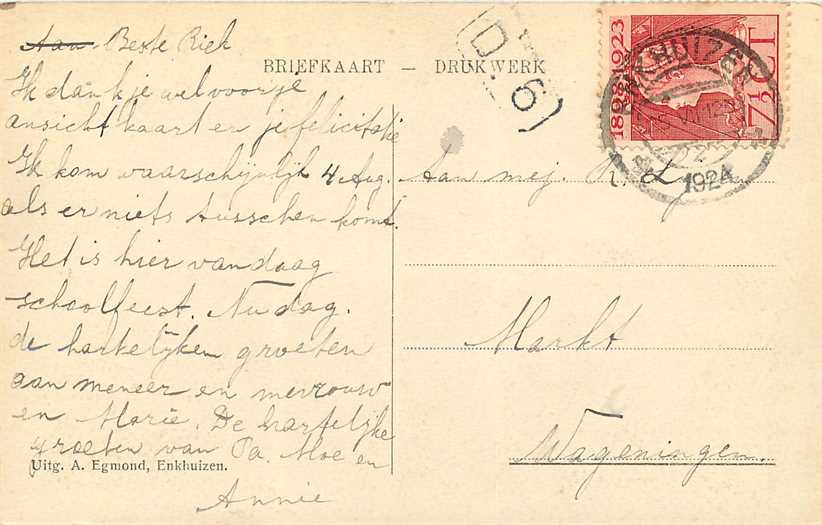 Aan Beste Riek
Ik dank je wel voor je
ansichtkaart er je felicitatie
Ik kom waarschijnlijk 4 Aug.
als er niets tusschen komt.
Het is hier vandaag
schoolfeest. Nu dag.
de hartelijken groeten
aan meneer en mevrouw
en Marie. De hartelijke
groeten van Pa. Moe en
Annie
Uitg. A. Egmond, Enkhuizen.
BRIEFKAART — DRUKWERK
D.6
1898 1923
7½ CT
ENKHUIZEN
1924
Aan mej.
Markt
Wageningen.